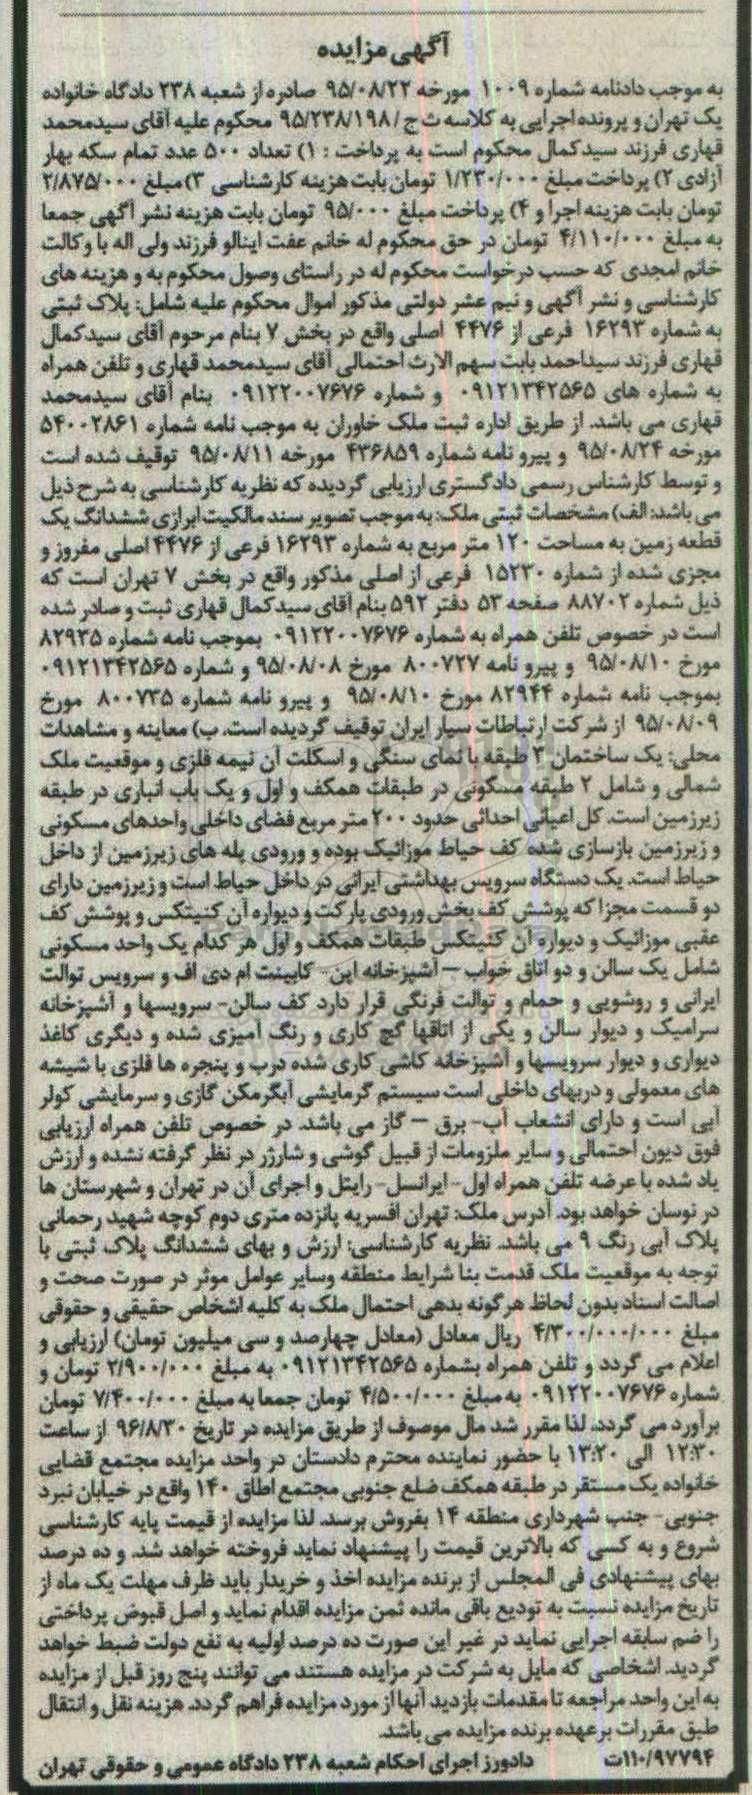 آگهی مزایده
به موجب دادنامه شماره ۱۰۰۹ مورخه ۹۵/۰۸/۲۲ صادره از شعبه ۲۳۸ دادگاه خانواده
یک تهران و پرونده اجرایی به کلاسه ث ج /۹۵/۲۳۸/۱۹۸ محکوم علیه آقای سیدمحمد
قهاری فرزند سیدکمال محکوم است به پرداخت : ۱) تعداد ۵۰۰ عدد تمام سکه بهار
آزادی ۲) پرداخت مبلغ ۱/۲۳۰/۰۰۰ تومان بابت هزینه کارشناسی ۳)مبلغ ۲/۸۷۵/۰۰۰
تومان بابت هزینه اجرا و ۴) پرداخت مبلغ ۹۵/۰۰۰ تومان بابت هزینه نشر آگهی جمعا
به مبلغ ۴/۱۱۰/۰۰۰ تومان در حق محکوم له خانم عفت اینالو فرزند ولی اله با وکالت
خانم امجدی که حسب درخواست محکوم له در راستای وصول محکوم به و هزینه های
کارشناسی و نشر آگهی و نیم عشر دولتی مذکور اموال محکوم علیه شامل: پلاک ثبتی
به شماره ۱۶۲۹۳ فرعی از ۴۴۷۶ اصلی واقع در بخش ۷ بنام مرحوم آقای سیدکمال
قهاری فرزند سیداحمد بابت سهم الارث احتمالی آقای سیدمحمد قهاری و تلفن همراه
به شماره های ۰۹۱۲۱۳۴۲۵۶۵ و شماره ۰۹۱۲۲۰۰۷۶۷۶ بنام آقای سیدمحمد
قهاری می باشد. از طریق اداره ثبت ملک خاوران به موجب نامه شماره ۵۴۰۰۲۸۶۱
مورخه ۹۵/۰۸/۲۴ و پیرو نامه شماره ۴۳۶۸۵۹ مورخه ۹۵/۰۸/۱۱ توقیف شده است
و توسط کارشناس رسمی دادگستری ارزیابی گردیده که نظریه کارشناسی به شرح ذیل
می باشد: الف) مشخصات ثبتی ملک: به موجب تصویر سند مالکیت ابرازی ششدانگ یک
قطعه زمین به مساحت ۱۲۰ متر مربع به شماره ۱۶۲۹۳ فرعی از ۴۴۷۶ اصلی مفروز و
مجزی شده از شماره ۱۵۲۳۰ فرعی از اصلی مذکور واقع در بخش ۷ تهران است که
ذیل شماره ۸۸۷۰۲ صفحه ۵۳ دفتر ۵۹۲ بنام آقای سیدکمال قهاری ثبت و صادر شده
است در خصوص تلفن همراه به شماره ۰۹۱۲۲۰۰۷۶۷۶ بموجب نامه شماره ۸۲۹۳۵
مورخ ۹۵/۰۸/۱۰ و پیرو نامه ۸۰۰۷۲۷ مورخ ۹۵/۰۸/۰۸ و شماره ۰۹۱۲۱۳۴۲۵۶۵
بموجب نامه شماره ۸۲۹۴۴ مورخ ۹۵/۰۸/۱۰ و پیرو نامه شماره ۸۰۰۷۳۵ مورخ
۹۵/۰۸/۰۹ از شرکت ارتباطات سیار ایران توقیف گردیده است. ب) معاینه و مشاهدات
محلی: یک ساختمان ۳ طبقه با نمای سنگی و اسکلت آن نیمه فلزی و موقعیت ملک
شمالی و شامل ۲ طبقه مسکونی در طبقات همکف و اول و یک باب انباری در طبقه
زیرزمین است. کل اعیانی احداثی حدود ۲۰۰ متر مربع فضای داخلی واحدهای مسکونی
و زیرزمین بازسازی شده کف حیاط موزائیک بوده و ورودی پله های زیرزمین از داخل
حیاط است. یک دستگاه سرویس بهداشتی ایرانی در داخل حیاط است و زیرزمین دارای
دو قسمت مجزا که پوشش کف بخش ورودی پارکت و دیواره آن کنیتکس و پوشش کف
عقبی موزائیک و دیواره آن کنیتکس طبقات همکف و اول هر کدام یک واحد مسکونی
شامل یک سالن و دو اتاق خواب – آشپزخانه اپن- کابینت ام دی اف و سرویس توالت
ایرانی و روشویی و حمام و توالت فرنگی قرار دارد کف سالن- سرویسها و آشپزخانه
سرامیک و دیوار سالن و یکی از اتاقها گچ کاری و رنگ آمیزی شده و دیگری کاغذ
دیواری و دیوار سرویسها و آشپزخانه کاشی کاری شده درب و پنجره ها فلزی با شیشه
های معمولی و دربهای داخلی است سیستم گرمایشی آبگرمکن گازی و سرمایشی کولر
آبی است و دارای انشعاب آب- برق – گاز می باشد. در خصوص تلفن همراه ارزیابی
فوق دیون احتمالی و سایر ملزومات از قبیل گوشی و شارژر در نظر گرفته نشده و ارزش
یاد شده با عرضه تلفن همراه اول- ایرانسل- رایتل و اجرای آن در تهران و شهرستان ها
در نوسان خواهد بود. آدرس ملک: تهران افسریه پانزده متری دوم کوچه شهید رحمانی
پلاک آبی رنگ ۹ می باشد. نظریه کارشناسی: ارزش و بهای ششدانگ پلاک ثبتی با
توجه به موقعیت ملک قدمت بنا شرایط منطقه وسایر عوامل موثر در صورت صحت و
اصالت اسناد بدون لحاظ هرگونه بدهی احتمال ملک به کلیه اشخاص حقیقی و حقوقی
مبلغ ۴/۳۰۰/۰۰۰/۰۰۰ ریال معادل (معادل چهارصد و سی میلیون تومان) ارزیابی و
اعلام می گردد و تلفن همراه بشماره ۰۹۱۲۱۳۴۲۵۶۵ به مبلغ ۲/۹۰۰/۰۰۰ تومان و
شماره ۰۹۱۲۲۰۰۷۶۷۶ به مبلغ ۴/۵۰۰/۰۰۰ تومان جمعا به مبلغ ۷/۴۰۰/۰۰۰ تومان
برآورد می گردد. لذا مقرر شد مال موصوف از طریق مزایده در تاریخ ۹۶/۸/۳۰ از ساعت
۱۲:۳۰ الی ۱۳:۲۰ با حضور نماینده محترم دادستان در واحد مزایده مجتمع قضایی
خانواده یک مستقر در طبقه همکف ضلع جنوبی مجتمع اطاق ۱۴۰ واقع در خیابان نبرد
جنوبی- جنب شهرداری منطقه ۱۴ بفروش برسد. لذا مزایده از قیمت پایه کارشناسی
شروع و به کسی که بالاترین قیمت را پیشنهاد نماید فروخته خواهد شد. و ده درصد
بهای پیشنهادی فی المجلس از برنده مزایده اخذ و خریدار باید ظرف مهلت یک ماه از
تاریخ مزایده نسبت به تودیع باقی مانده ثمن مزایده اقدام نماید و اصل قبوض پرداختی
را ضم سابقه اجرایی نماید در غیر این صورت ده درصد اولیه به نفع دولت ضبط خواهد
گردید. اشخاصی که مایل به شرکت در مزایده هستند می توانند پنج روز قبل از مزایده
به این واحد مراجعه تا مقدمات بازدید آنها از مورد مزایده فراهم گردد. هزینه نقل و انتقال
طبق مقررات برعهده برنده مزایده می باشد.
۱۱۰/۹۷۷۹۴ت دادورز اجرای احکام شعبه ۲۳۸ دادگاه عمومی و حقوقی تهران